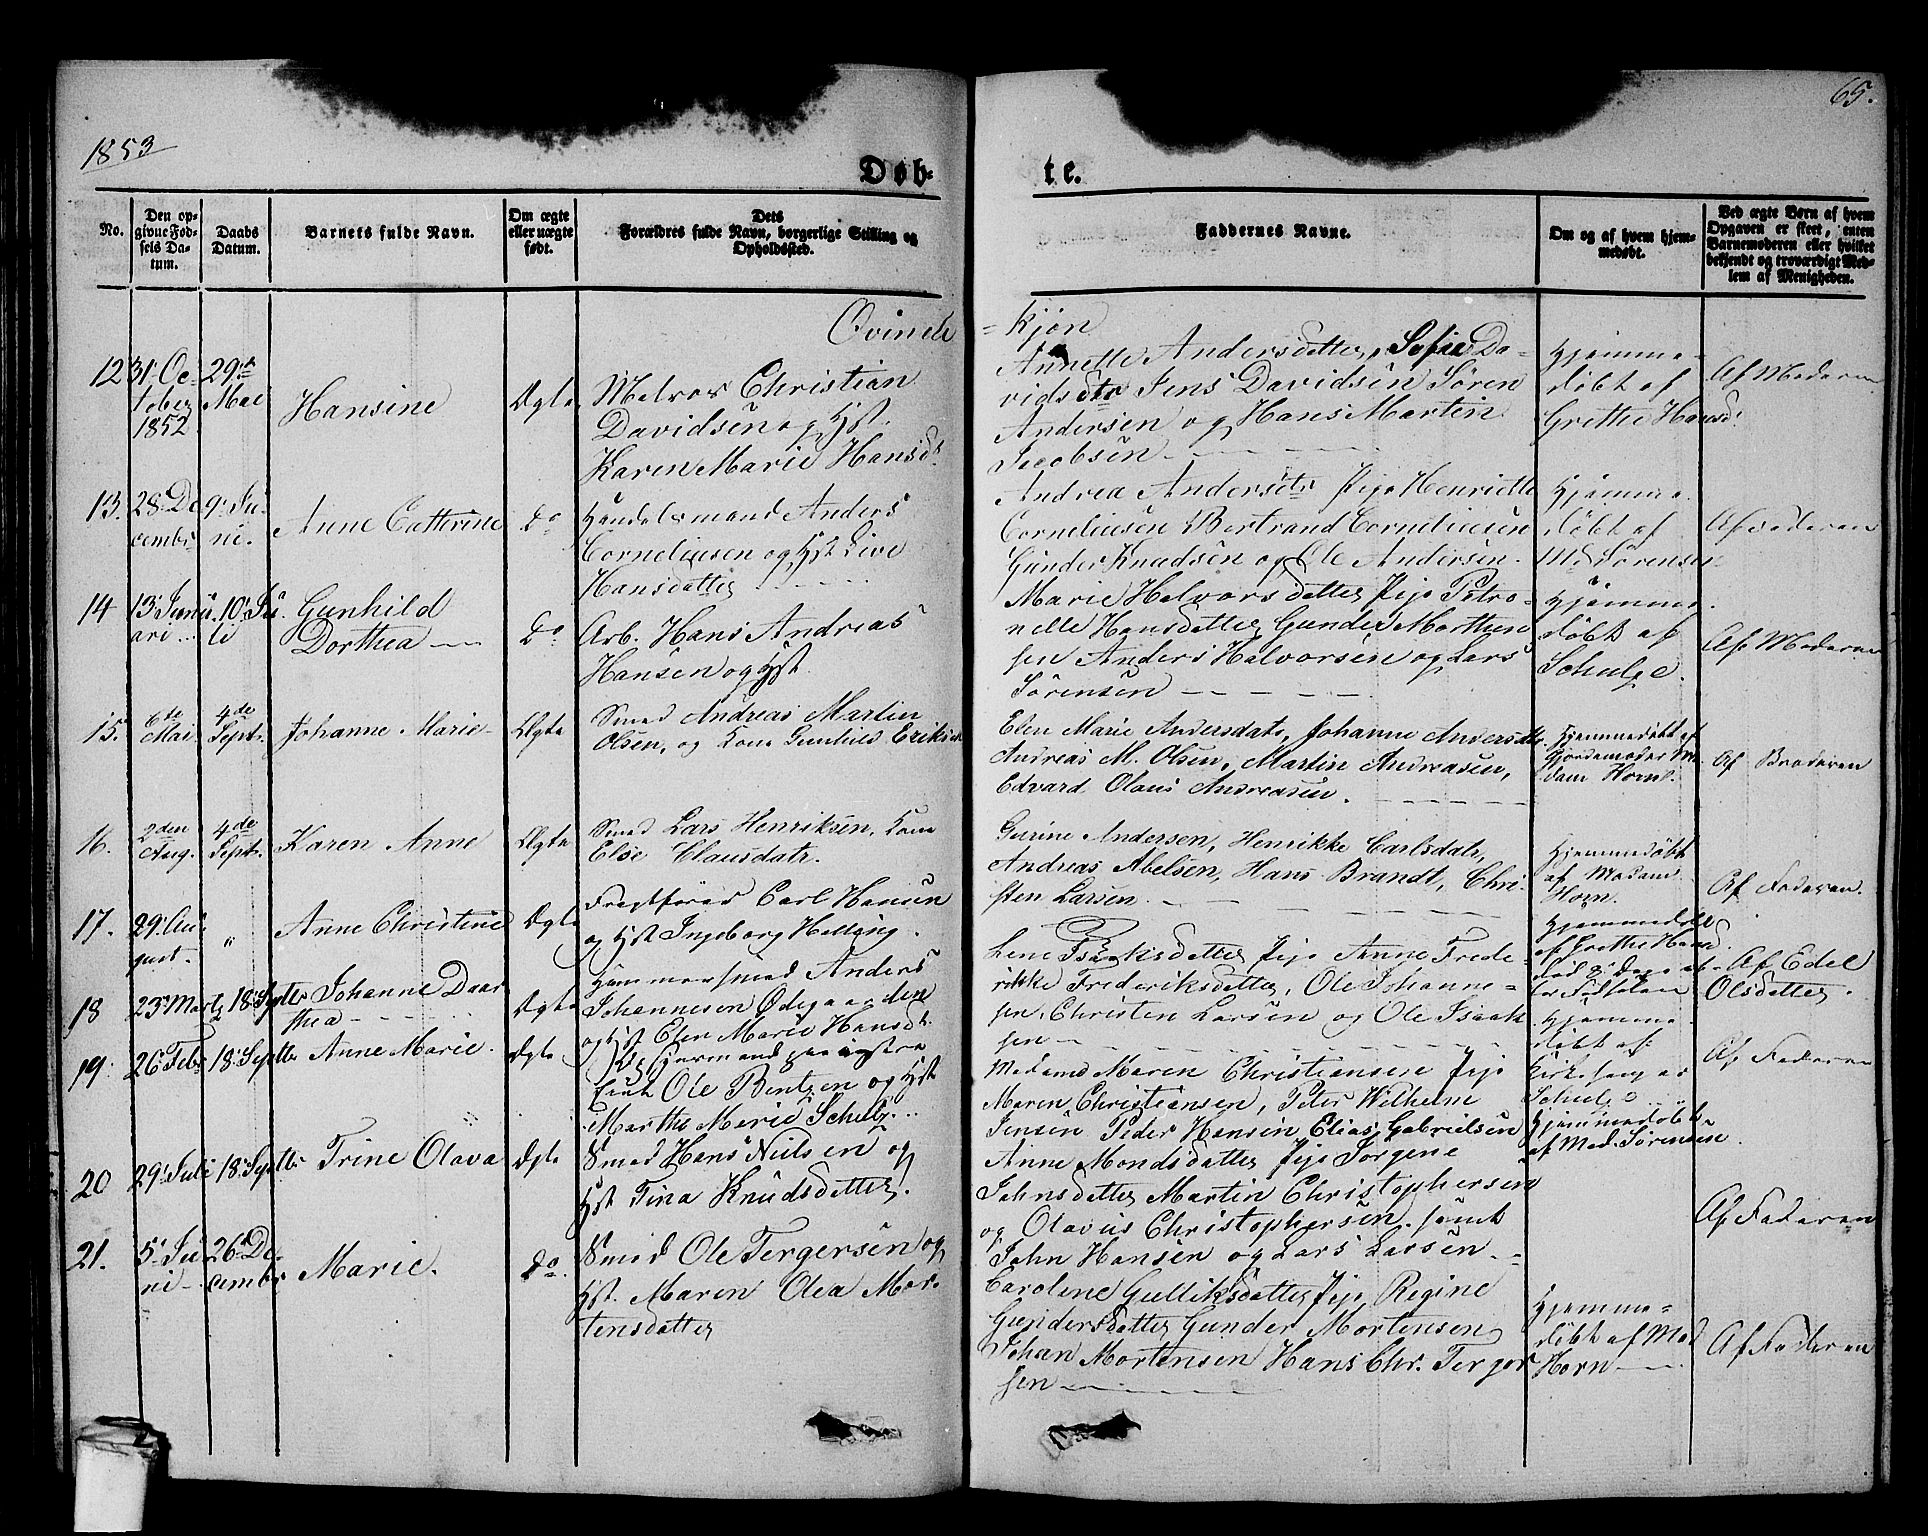 1853
65.
Døb-
te.
No.
Den op-
givne Fød-
sels Da-
tum.
Daabs
Datum.
Barnets fulde Navn.
Om ægte
eller uægte
født.
Dets
Forældres fulde Navn, borgerlige Stilling og
Opholdssted.
Faddernes Navne.
Om og af hvem hjem-
medøbt.
Ved ægte Børn af hvem
Opgaven er skeet, enten
Barnemoderen eller hvilket
bekjendt og troværdigt Med-
lem af Menigheden.
Qvinde
=kjøn
12
31' Oc-
tober
1852
29de
Mai
Hansine
Ægte
Matros Christian
Davidsen og Hst.
Karen Marie Hansd.
Annette Andersdatter, Sofie Da-
vidsdtr Jens Davidsen Søren
Andersen og Hans Martin
Jacobsen
Hjemme-
døbt af
Grethe Hansd.
Af Moderen
13.
28' De-
cembr
9' Ju-
ni.
Anne Catterine
Do
Handelsmand Anders
Corneliusen og Hst Live
Hansdatter
Andrea Andersdtr Pige Henriette
Corneliusen Bertrand Corneliusen
Gunder Knudsen og Ole Andersen.
Hjemme-
døbt af
Md Sørensen
Af Faderen
14
13' Janu-
ari
10' Ju-
li
Gunhild
Dorthea
Do
Arb. Hans Andreas
Hansen og Hst.
Marie Halvorsdatter Pige Petro-
nelle Hansdatter Gunder Morthen-
sen Anders Halvorsen og Lars
Sørensen
Hjemme-
døbt af
Schulze.
Af Moderen
15.
6te
Mai
4de
Septr.
Johanne Marie
Ægte
Smed Andreas Martin
Olsen, og Kone Gunhild Eriksd
Elen Marie Andersdatr, Johanne Andersdtr.
Andreas M. Olsen, Martin Andreasen,
Edvard Olaus Andreasen.
Hjemmedøbt af
Gjordemoder Ma-
dam Horn.
Af Broderen
16.
2den
Aug.
4de
Septr.
Karen Anne
Ægte
Smed Lars Henriksen, Kone
Else Clausdatr.
Gurine Andersen, Henrikke Carlsdatr,
Andreas Abelsen, Hans Brandt, Chri-
sten Larsen.
Hjemmedøbt
af Madam
Horn.
Af Faderen.
17.
29' Au-
gust.
"
Anne Christine
Ægte
Fragtfører Carl Hansen
og Hst Ingeborg Helling.
Hjemmedøbt
af Grethe Hansd.
død 8 Dage af-
ter Fødselen
Af Edel
Olsdatter.
18
23' Marts
18' Septbr
Johanne Daar-
thea
Ægte
Hammersmed Anders
Johannesen Ødegaarden
og Hst Elen Marie Hansd.
Lene Isaaksdatter Pige Anne Frede-
rikke Frederiksdatter, Ole Johanne-
sen, Christen Larsen og Ole Isaak-
sen
Hjemme-
døbt af
Kirkesanger
Schulze
Af Faderen
19.
26' Febr
18' Septbr
Anne Marie.
Ægte
Ole Bentzen og Hst
Marthe Marie Schulz.
Madame Maren Christiansen Pige
Maren Christiansen, Peter Wilhelm
Jensen Peder Hansen Elias Gabrielsen
Hjemmedøbt
af Mad. Sørensen
20
29' Juli
18' Septbr
Trine Olava
Ægte
Smed Hans Nielsen og
Hst Tina Knudsdatter.
Anne Mondsdatter Pige Jørgene
Johnsdatter Martin Christophersen
og Olavus Christophersen. samt
John Hansen og Lars Larsen.
Af Faderen
21.
5' Ju-
ni
26' De-
cembr
Marie.
Do.
Smed Ole Tergersen og
Hst. Maren Olea Mor-
tensdatter
Caroline Gulliksdatter Pige Regine
Gundersdatter Gunder Mortensen
Johan Mortensen Hans Chr. Terger-
sen
Hjemme-
døbt af Mad
Horn
Af Faderen